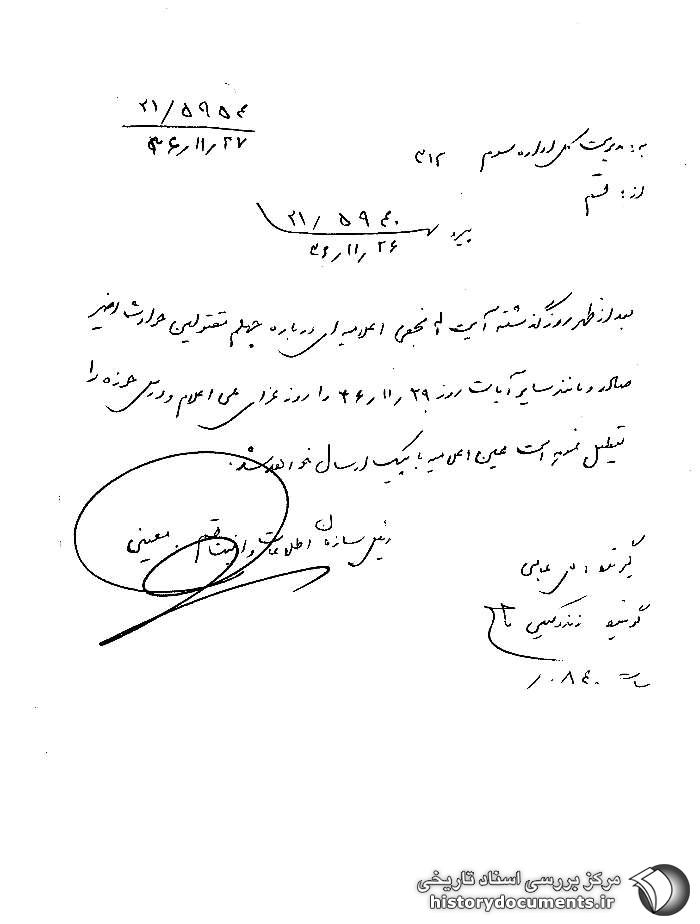 ۲۱/۵۹۵۴
۳۶/۱۱/۲۷
به: مدیریت کل اداره سوم ۳۱۲
از: قم
پیرو ۲۱/۵۹۴۰
۳۶/۱۱/۲۶
بعد از ظهر روز گذشته آیت اله نجفی اعلامیه‌ای درباره چهلم مقتولین حوادث اخیر
صادر و مانند سایر آیات روز ۳۶/۱۱/۲۹ را روز عزای عمومی اعلام و درس حوزه را
تعطیل نموده است عین اعلامیه با پیک ارسال خواهد شد.
رئیس سازمان اطلاعات و امنیت قم. معینی
گیرنده:
گوینده
ساعت ۰۸۴۰
مرکز بررسی اسناد تاریخی
historydocuments.ir